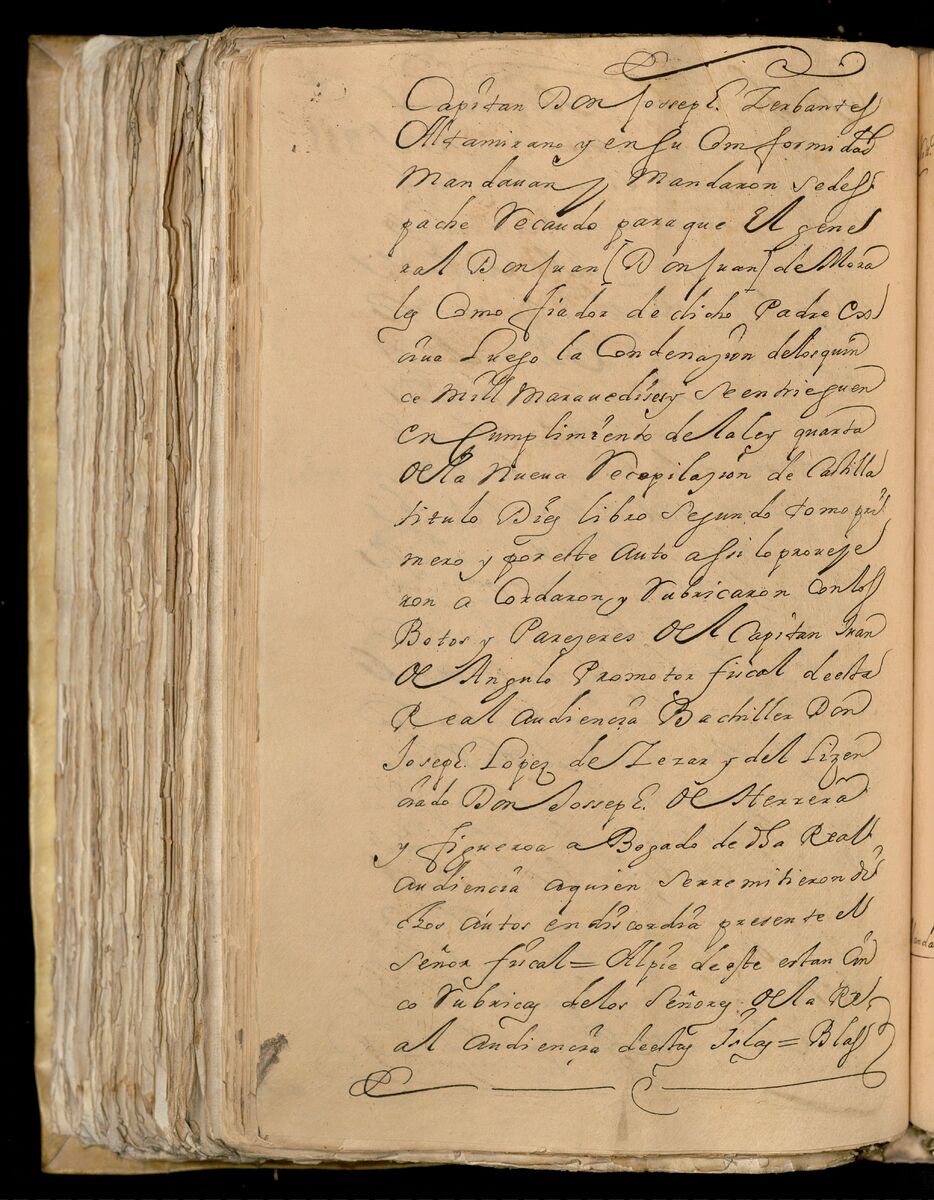 Capitan Don Joseph Zerbantes
Altamirano y en su Comformidad
Mandauan y Mandaron se des
pache Recaudo para que El gene
ral Don Juan [Don Juan] de Mora
les Como fiador de dicho Padre
Luego la Condenaçion de los quin
ce Mill Marauedises y se entrieguen
en Cumplimiento de la ley quarta
de la Nueua Recopilaçion de Castilla
titulo Diez libro Segundo tomo pri
mero y por este Auto assi lo proveye
ron a Cordaron, y Rubricaron con los
Botos y Pareçeres del Capitan Juan
de Angulo Promotor fiscal de esta
Real Audiençia Bachiller Don
Joseph Lopez de y del Lizen
ciado Don Joseph de Herrera
y figueroa a Bogado de dha Real
Audiencia aquien se rremitieron di
chos autos en discordia presente el
Señor fiscal = Al pie de este estan Cin
co Rubricas de los Señores de la Re
al Audiençia de estas Islas = Blas